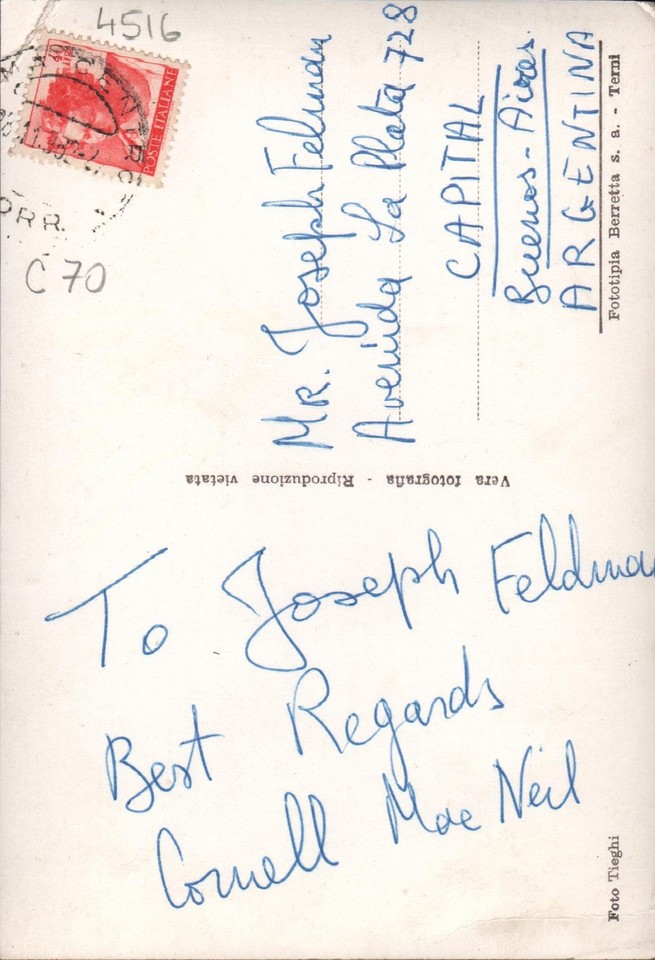 4516
POSTE ITALIANE
ORR.
C 70
Mr. Joseph Felman
Avenida La Plata 728
CAPITAL
Buenos-Aires.
ARGENTINA
Fototipia Berretta s. a. - Terni
Vera fotografia - Riproduzione vietata
To Joseph Feldman
Best Regards
Cornell Mac Neil
Foto Tieghi